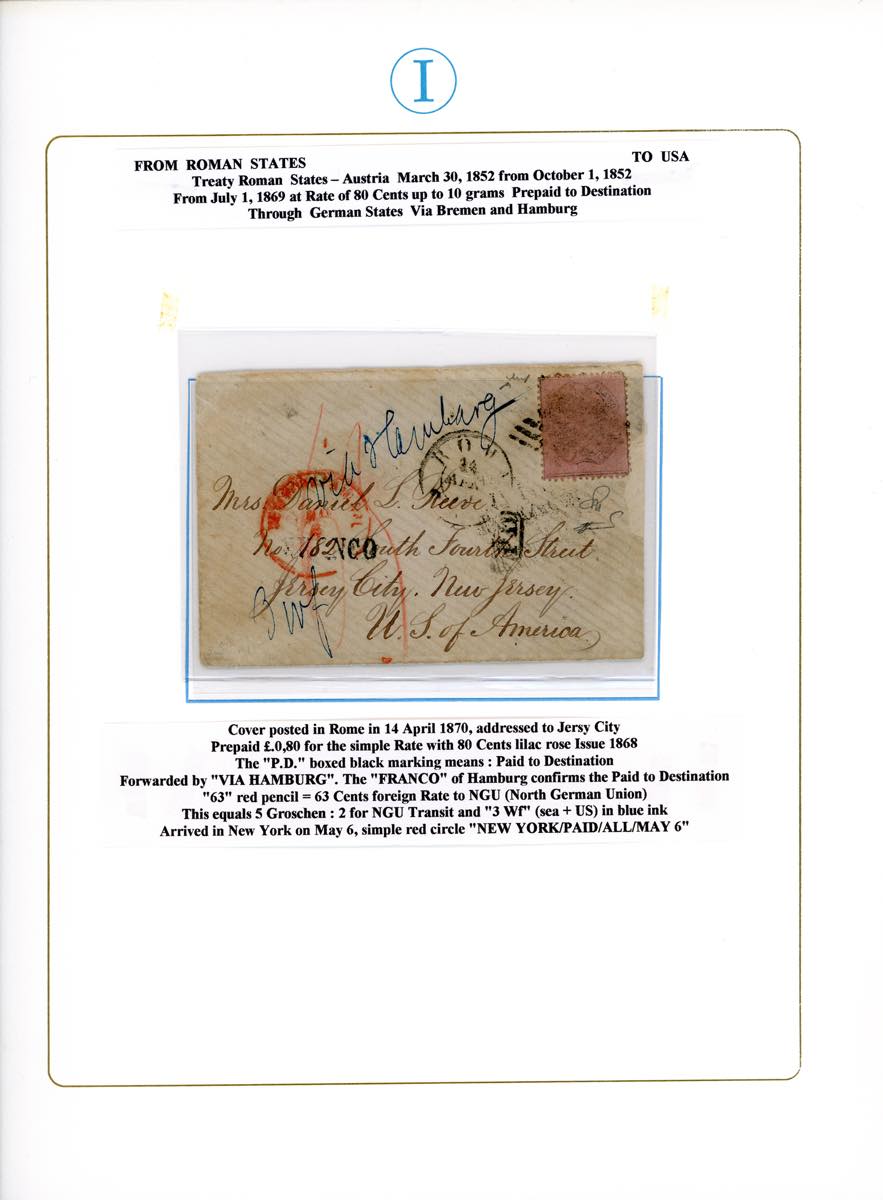 I
FROM ROMAN STATES TO USA
Treaty Roman States – Austria March 30, 1852 from October 1, 1852
From July 1, 1869 at Rate of 80 Cents up to 10 grams Prepaid to Destination
Through German States Via Bremen and Hamburg
via Hamburg
ROMA
14
Mrs. Daniel L. Reeve.
No. 182 South Fourth Street.
NCO
Jersey City. New Jersey.
3 Wf
U. S. of America
Cover posted in Rome in 14 April 1870, addressed to Jersy City
Prepaid £.0,80 for the simple Rate with 80 Cents lilac rose Issue 1868
The "P.D." boxed black marking means : Paid to Destination
Forwarded by "VIA HAMBURG". The "FRANCO" of Hamburg confirms the Paid to Destination
"63" red pencil = 63 Cents foreign Rate to NGU (North German Union)
This equals 5 Groschen : 2 for NGU Transit and "3 Wf" (sea + US) in blue ink
Arrived in New York on May 6, simple red circle "NEW YORK/PAID/ALL/MAY 6"